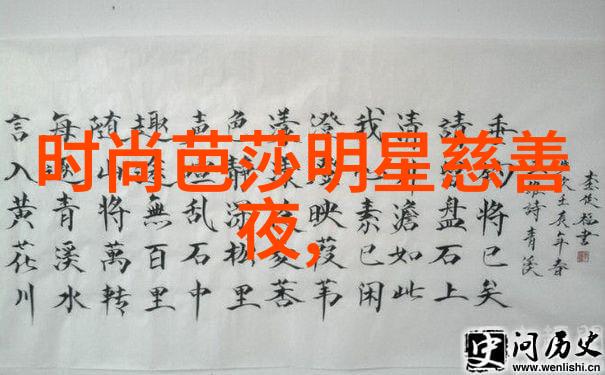 时尚芭莎明星慈善
夜,
言入黄花川
每逐青溪水
随山将萬转
趣途無百里
声乱石中
色静深松里
漾
澄澄映葭苇
我素已闲
清川澹如此
請盘石上
垂将已矣
年春
詩青溪
书
问历史
www.wenlishi.cn